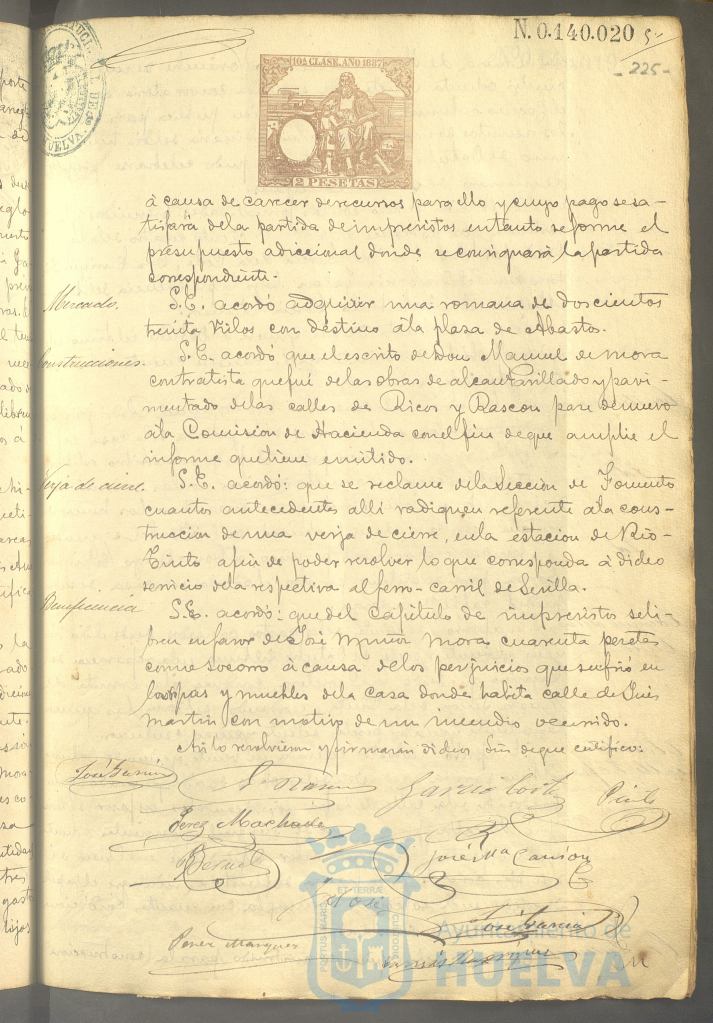 N. 0.140.020
5
- 225 -
10ª CLASE. AÑO 1887
2 PESETAS
HUELVA
à causa de carecer de recursos para ello y cuyo pago se sa-
tisfará de la partida de imprevistos en tanto se forme el
presupuesto adiccional donde se consignará la partida
correspondiente.
Mercado. S. E. acordó adquirir una romana de doscientos
treinta kilos, con destino á la plaza de Abastos.
Construcciones. S. E. acordó que el escrito de Don Manuel de Mora
contratista que fué de las obras de alcantarillado y pavi-
mentado de las calles de Ricos y Rascon pase de nuevo
á la Comision de Hacienda con el fin de que amplie el
informe que tiene emitido.
Verja de cierre. S. E. acordó: que se reclame de la Seccion de Fomento
cuantos antecedentes allí radiquen referente á la cons-
truccion de una verja de cierre, en la estacion de Rio-
Tinto a fin de poder resolver lo que corresponda á dicho
servicio de la respectiva al ferro-carril de Sevilla.
Beneficencia S. E. acordó: que del Capítulo de imprevistos se li-
bren en favor de José Muñiz Mora cuarenta pesetas
como socorro à causa de los perjuicios que sufrió en
las ropas y muebles de la casa donde habita calle de
Martin con motivo de un incendio ocurrido.
Así lo resolvieron y firmarán dichos Sres de que certifico:
José García
García
Perez Machado
Bernal
José Mª
José
José García
Perez Marquez
PORTUS MARIS ET TERRAE CUSTODIA
Ayuntamiento de
HUELVA